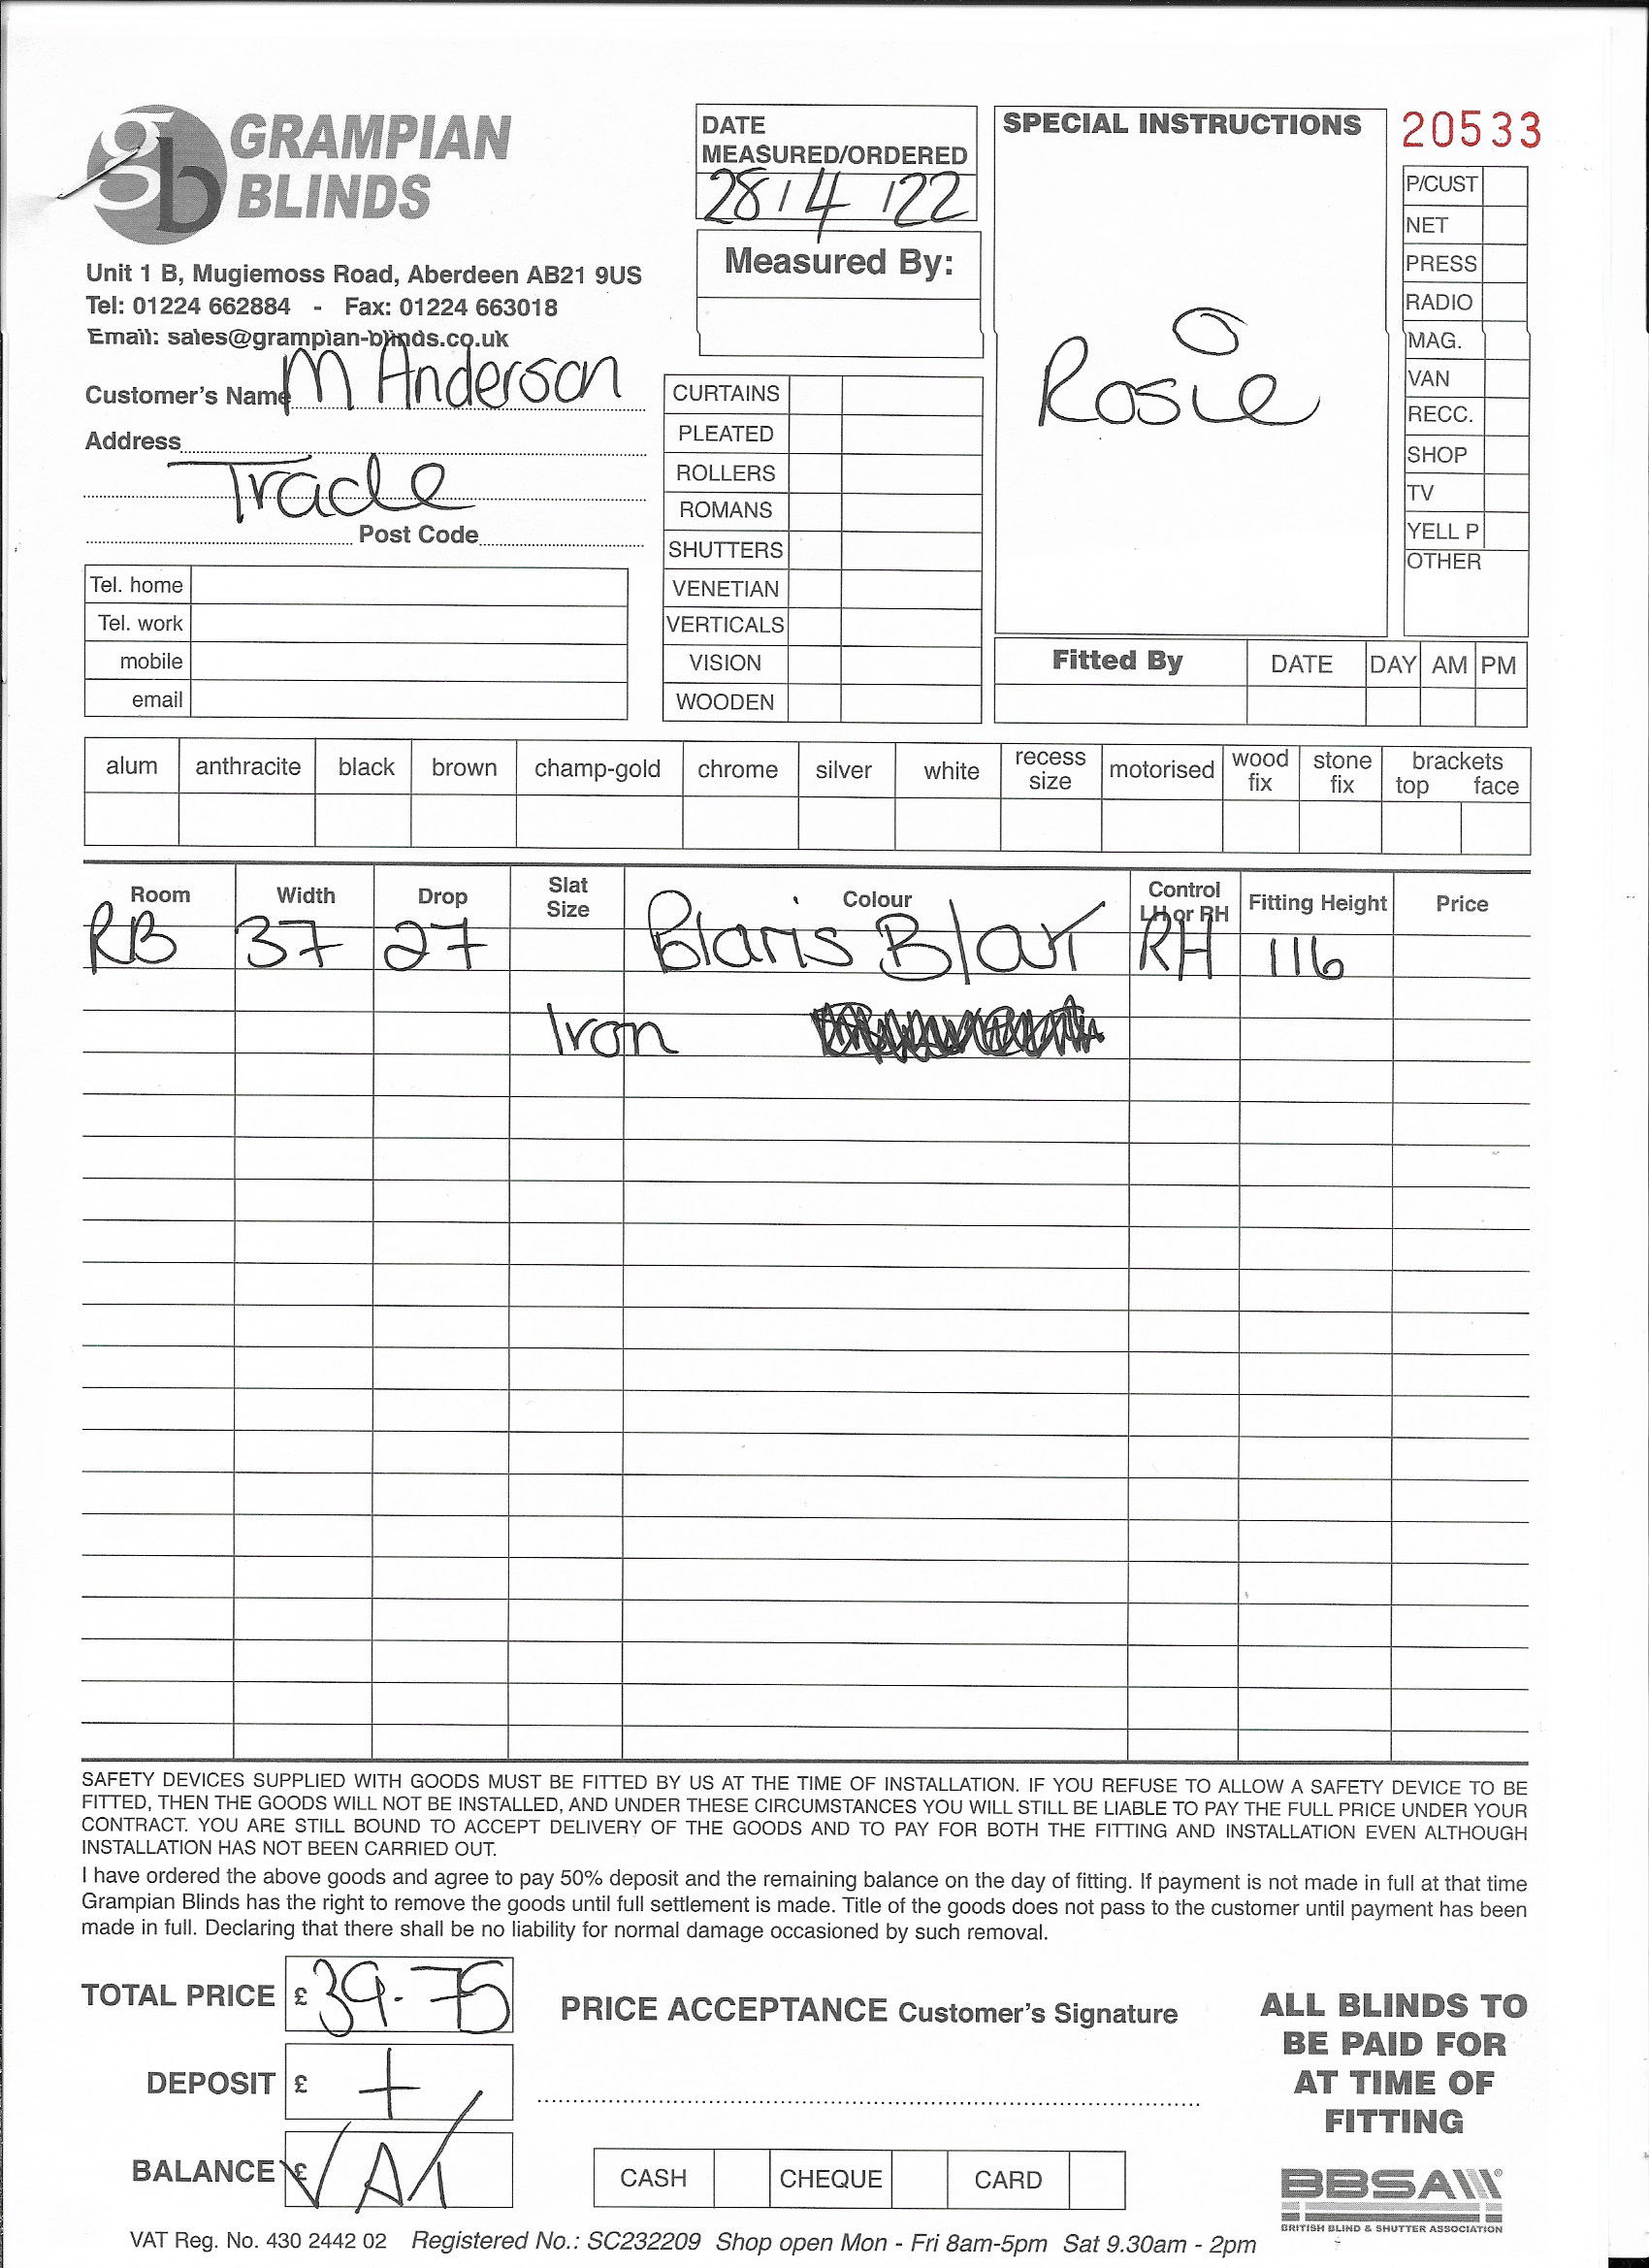 gb GRAMPIAN
BLINDS
Unit 1 B, Mugiemoss Road, Aberdeen AB21 9US
Tel: 01224 662884 - Fax: 01224 663018
Email: sales@grampian-blinds.co.uk
Customer's Name M Anderson
Address
Trade
Post Code
Tel. home
Tel. work
mobile
email
DATE
MEASURED/ORDERED
28/4/22
Measured By:
CURTAINS
PLEATED
ROLLERS
ROMANS
SHUTTERS
VENETIAN
VERTICALS
VISION
WOODEN
SPECIAL INSTRUCTIONS
Rosie
20533
P/CUST
NET
PRESS
RADIO
MAG.
VAN
RECC.
SHOP
TV
YELL P
OTHER
Fitted By DATE DAY AM PM
alum anthracite black brown champ-gold chrome silver white recess size motorised wood fix stone fix brackets top face
Room Width Drop Slat Size Colour Control LH or RH Fitting Height Price
RB 37 27 RH 116
Iron
SAFETY DEVICES SUPPLIED WITH GOODS MUST BE FITTED BY US AT THE TIME OF INSTALLATION. IF YOU REFUSE TO ALLOW A SAFETY DEVICE TO BE
FITTED, THEN THE GOODS WILL NOT BE INSTALLED, AND UNDER THESE CIRCUMSTANCES YOU WILL STILL BE LIABLE TO PAY THE FULL PRICE UNDER YOUR
CONTRACT. YOU ARE STILL BOUND TO ACCEPT DELIVERY OF THE GOODS AND TO PAY FOR BOTH THE FITTING AND INSTALLATION EVEN ALTHOUGH
INSTALLATION HAS NOT BEEN CARRIED OUT.
I have ordered the above goods and agree to pay 50% deposit and the remaining balance on the day of fitting. If payment is not made in full at that time
Grampian Blinds has the right to remove the goods until full settlement is made. Title of the goods does not pass to the customer until payment has been
made in full. Declaring that there shall be no liability for normal damage occasioned by such removal.
TOTAL PRICE £ 39.75
DEPOSIT £ +
BALANCE £ VAT
PRICE ACCEPTANCE Customer's Signature
CASH CHEQUE CARD
ALL BLINDS TO
BE PAID FOR
AT TIME OF
FITTING
BBSA
BRITISH BLIND & SHUTTER ASSOCIATION
VAT Reg. No. 430 2442 02 Registered No.: SC232209 Shop open Mon - Fri 8am-5pm Sat 9.30am - 2pm